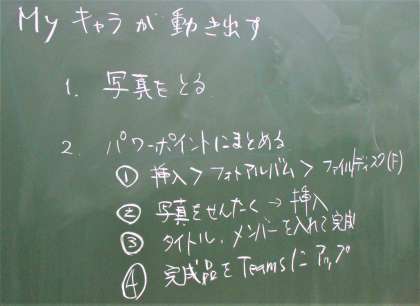 My キャラが動き出す
1. 写真をとる
2. パワーポイントにまとめる
① 挿入 > フォトアルバム > ファイル/ディスク(F)
② 写真をせんたく → 挿入
③ タイトル、メンバーを入れて完成
④ 完成品をTeamsにアップ